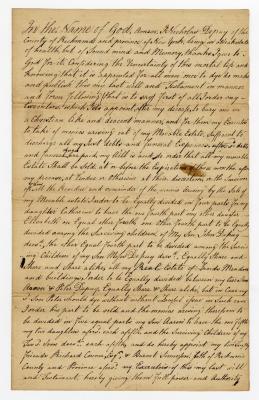 In the Name of God, Amen. I Nicholas Depuy of the
County of Richmond and province of New York, being in
of health, but of Sound mind and Memory, thanks be to
God for it, Considering the Uncertainty of this mortal life and
knowing that it is appointed for all men once to dye do make
and publish this my last will and Testament in manner
and form following that is to say first of all I order my
Executors which I do appoint after my decease to bury me in
a Christian like and decent manner, and for them my Executors
to take of monies arising out of my Movable Estate, Sufficient to
discharge all my Just debts and funeral Expences, after debts
and funeral are paid my will is and I order that all my movable
Estate Shall be sold at or before the Expiration of two weeks after
my decease, at Vendue or otherwise at their discretion, in the
of the Residue and remainder of the monies arising by the Sale of
my Movable estate I order to be Equally divided in four parts to my
daughter Catherine to have the one fourth part my other daughter
Elizabeth an Equal other fourth one other fourth part to be Equally
divided among the Surviving children of My Son John Depuy
decd., the other Equal fourth part to be divided among the Survi-
ving Children of my Son Moses Depuy decd. Equally Share and
Share and Share alike, all my Real Estate of Lands Meadows
and buildings I order to be Equally divided between my two Sons
Aaron & Peter Depuy, Equally Share & Share alike, but in Case my
Son Peter Should dye without Issue in such case
I order his part to be sold and the monies arising therefrom to
be divided in five equal parts my Son Aaron to have the one fifth
my two daughters aforesd. each a fifth and the Surviving Children of my
two Sons decd. each a fifth, and do hereby appoint my loving
friends Richard Conner Esqr. & Barent Simonson both of Richmond
County and Province aforesd. my Executors of this my last will
and Testament hereby giving them full power and authority